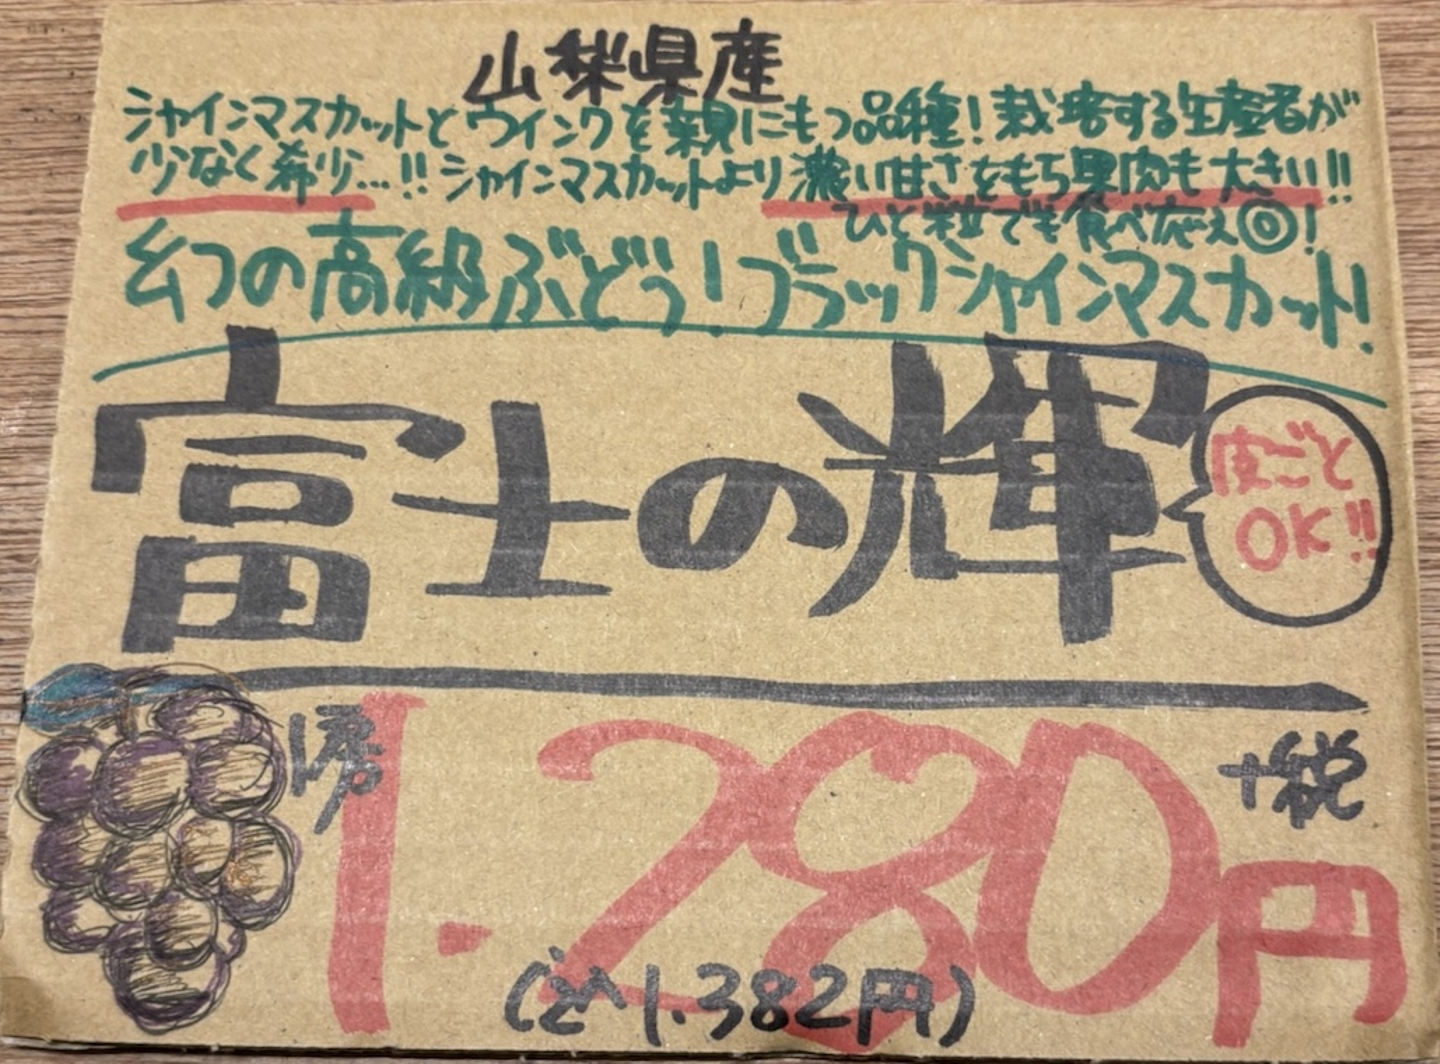 山梨県産
シャインマスカットとウインクを親にもつ品種！栽培する生産者が
少なく希少…!!シャインマスカットより濃い甘さをもち果肉も大きい!!
ひと粒でも食べ応え◎！
幻の高級ぶどう！ブラックシャインマスカット！
富士の輝
皮ごと
OK!!
1房
1.280円
+税
(込1.382円)